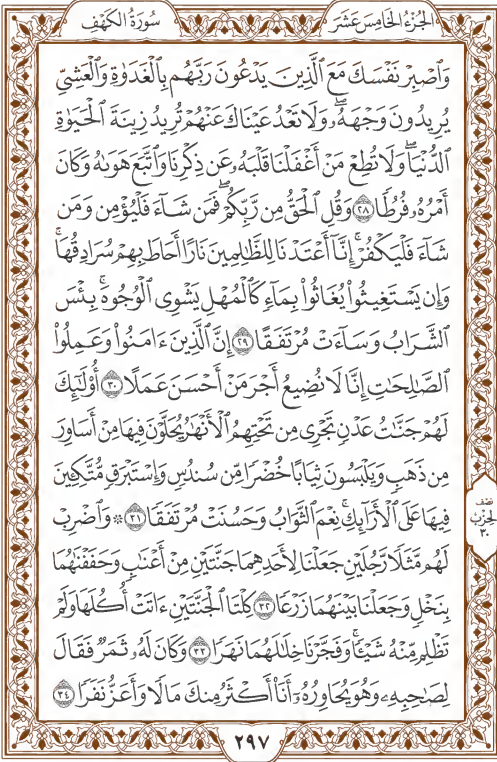 الجُزْءُ الخَامِسَ عَشَرَ
سُورَةُ الكَهْفِ
وَٱصْبِرْ نَفْسَكَ مَعَ ٱلَّذِينَ يَدْعُونَ رَبَّهُم بِٱلْغَدَوٰةِ وَٱلْعَشِيِّ
يُرِيدُونَ وَجْهَهُۥۖ وَلَا تَعْدُ عَيْنَاكَ عَنْهُمْ تُرِيدُ زِينَةَ ٱلْحَيَوٰةِ
ٱلدُّنْيَاۖ وَلَا تُطِعْ مَنْ أَغْفَلْنَا قَلْبَهُۥ عَن ذِكْرِنَا وَٱتَّبَعَ هَوَىٰهُ وَكَانَ
أَمْرُهُۥ فُرُطًا ٢٨ وَقُلِ ٱلْحَقُّ مِن رَّبِّكُمْۖ فَمَن شَآءَ فَلْيُؤْمِن وَمَن
شَآءَ فَلْيَكْفُرْۚ إِنَّآ أَعْتَدْنَا لِلظَّٰلِمِينَ نَارًا أَحَاطَ بِهِمْ سُرَادِقُهَاۚ
وَإِن يَسْتَغِيثُوا۟ يُغَاثُوا۟ بِمَآءٍ كَٱلْمُهْلِ يَشْوِي ٱلْوُجُوهَۚ بِئْسَ
ٱلشَّرَابُ وَسَآءَتْ مُرْتَفَقًا ٢٩ إِنَّ ٱلَّذِينَ ءَامَنُوا۟ وَعَمِلُوا۟
ٱلصَّٰلِحَٰتِ إِنَّا لَا نُضِيعُ أَجْرَ مَنْ أَحْسَنَ عَمَلًا ٣٠ أُو۟لَٰٓئِكَ
لَهُمْ جَنَّٰتُ عَدْنٍ تَجْرِي مِن تَحْتِهِمُ ٱلْأَنْهَٰرُ يُحَلَّوْنَ فِيهَا مِنْ أَسَاوِرَ
مِن ذَهَبٍ وَيَلْبَسُونَ ثِيَابًا خُضْرًا مِّن سُندُسٍ وَإِسْتَبْرَقٍ مُّتَّكِـِٔينَ
فِيهَا عَلَى ٱلْأَرَآئِكِۚ نِعْمَ ٱلثَّوَابُ وَحَسُنَتْ مُرْتَفَقًا ٣١ ۞ وَٱضْرِبْ
لَهُم مَّثَلًا رَّجُلَيْنِ جَعَلْنَا لِأَحَدِهِمَا جَنَّتَيْنِ مِنْ أَعْنَٰبٍ وَحَفَفْنَٰهُمَا
بِنَخْلٍ وَجَعَلْنَا بَيْنَهُمَا زَرْعًا ٣٢ كِلْتَا ٱلْجَنَّتَيْنِ ءَاتَتْ أُكُلَهَا وَلَمْ
تَظْلِم مِّنْهُ شَيْـًٔاۚ وَفَجَّرْنَا خِلَٰلَهُمَا نَهَرًا ٣٣ وَكَانَ لَهُۥ ثَمَرٌ فَقَالَ
لِصَٰحِبِهِۦ وَهُوَ يُحَاوِرُهُۥٓ أَنَا۠ أَكْثَرُ مِنكَ مَالًا وَأَعَزُّ نَفَرًا ٣٤
نصف
الحزب
٣٠
٢٩٧